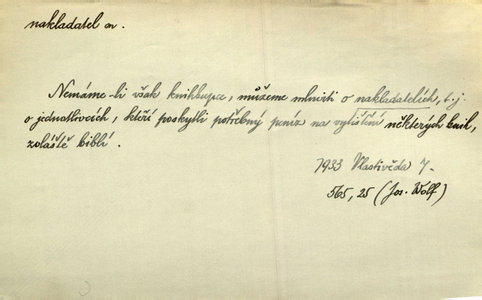 nakladatel m.
Nemáme-li však knihkupce, můžeme mluviti o nakladatelích, t. j.
o jednotlivcích, kteří poskytli potřebný peníz na vytištění některých knih,
zvláště biblí.
1933 Vlastivěda 7.
565, 25 (Jos. Wolf)